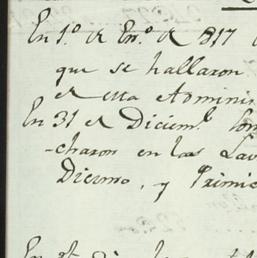 En 1º. de En.º de 817
que se hallaron
de esta Adminis
En 31 de Diciem.e
charon en las
Diezmo, y Primic
En